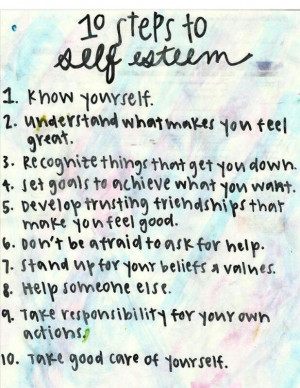 10 steps to
self esteem
1. Know yourself.
2. understand what makes you feel
great.
3. Recognize things that get you down.
4. set goals to achieve what you want.
5. Develop trusting friendships that
make you feel good.
6. Don't be afraid to ask for help.
7. Stand up for your beliefs & values.
8. Help someone else.
9. Take responsibility for your own
actions.
10. Take good care of yourself.